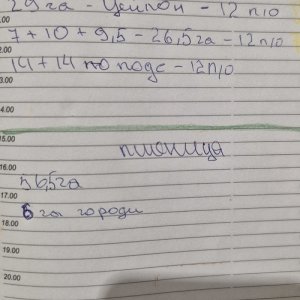 29 га - - 12 п/о
7 + 10 + 9,5 - 26,5 га - 12 п/о
14 + 14 по подс - 12 п/о
13.00
14.00
15.00
пшоница
16.00
56,5 га
17.00
6 га городи
18.00
19.00
20.00